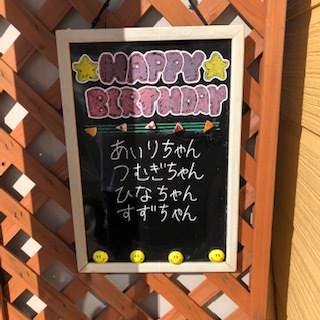 HAPPY
BIRTHDAY
あいりちゃん
つむぎちゃん
ひなちゃん
すずちゃん